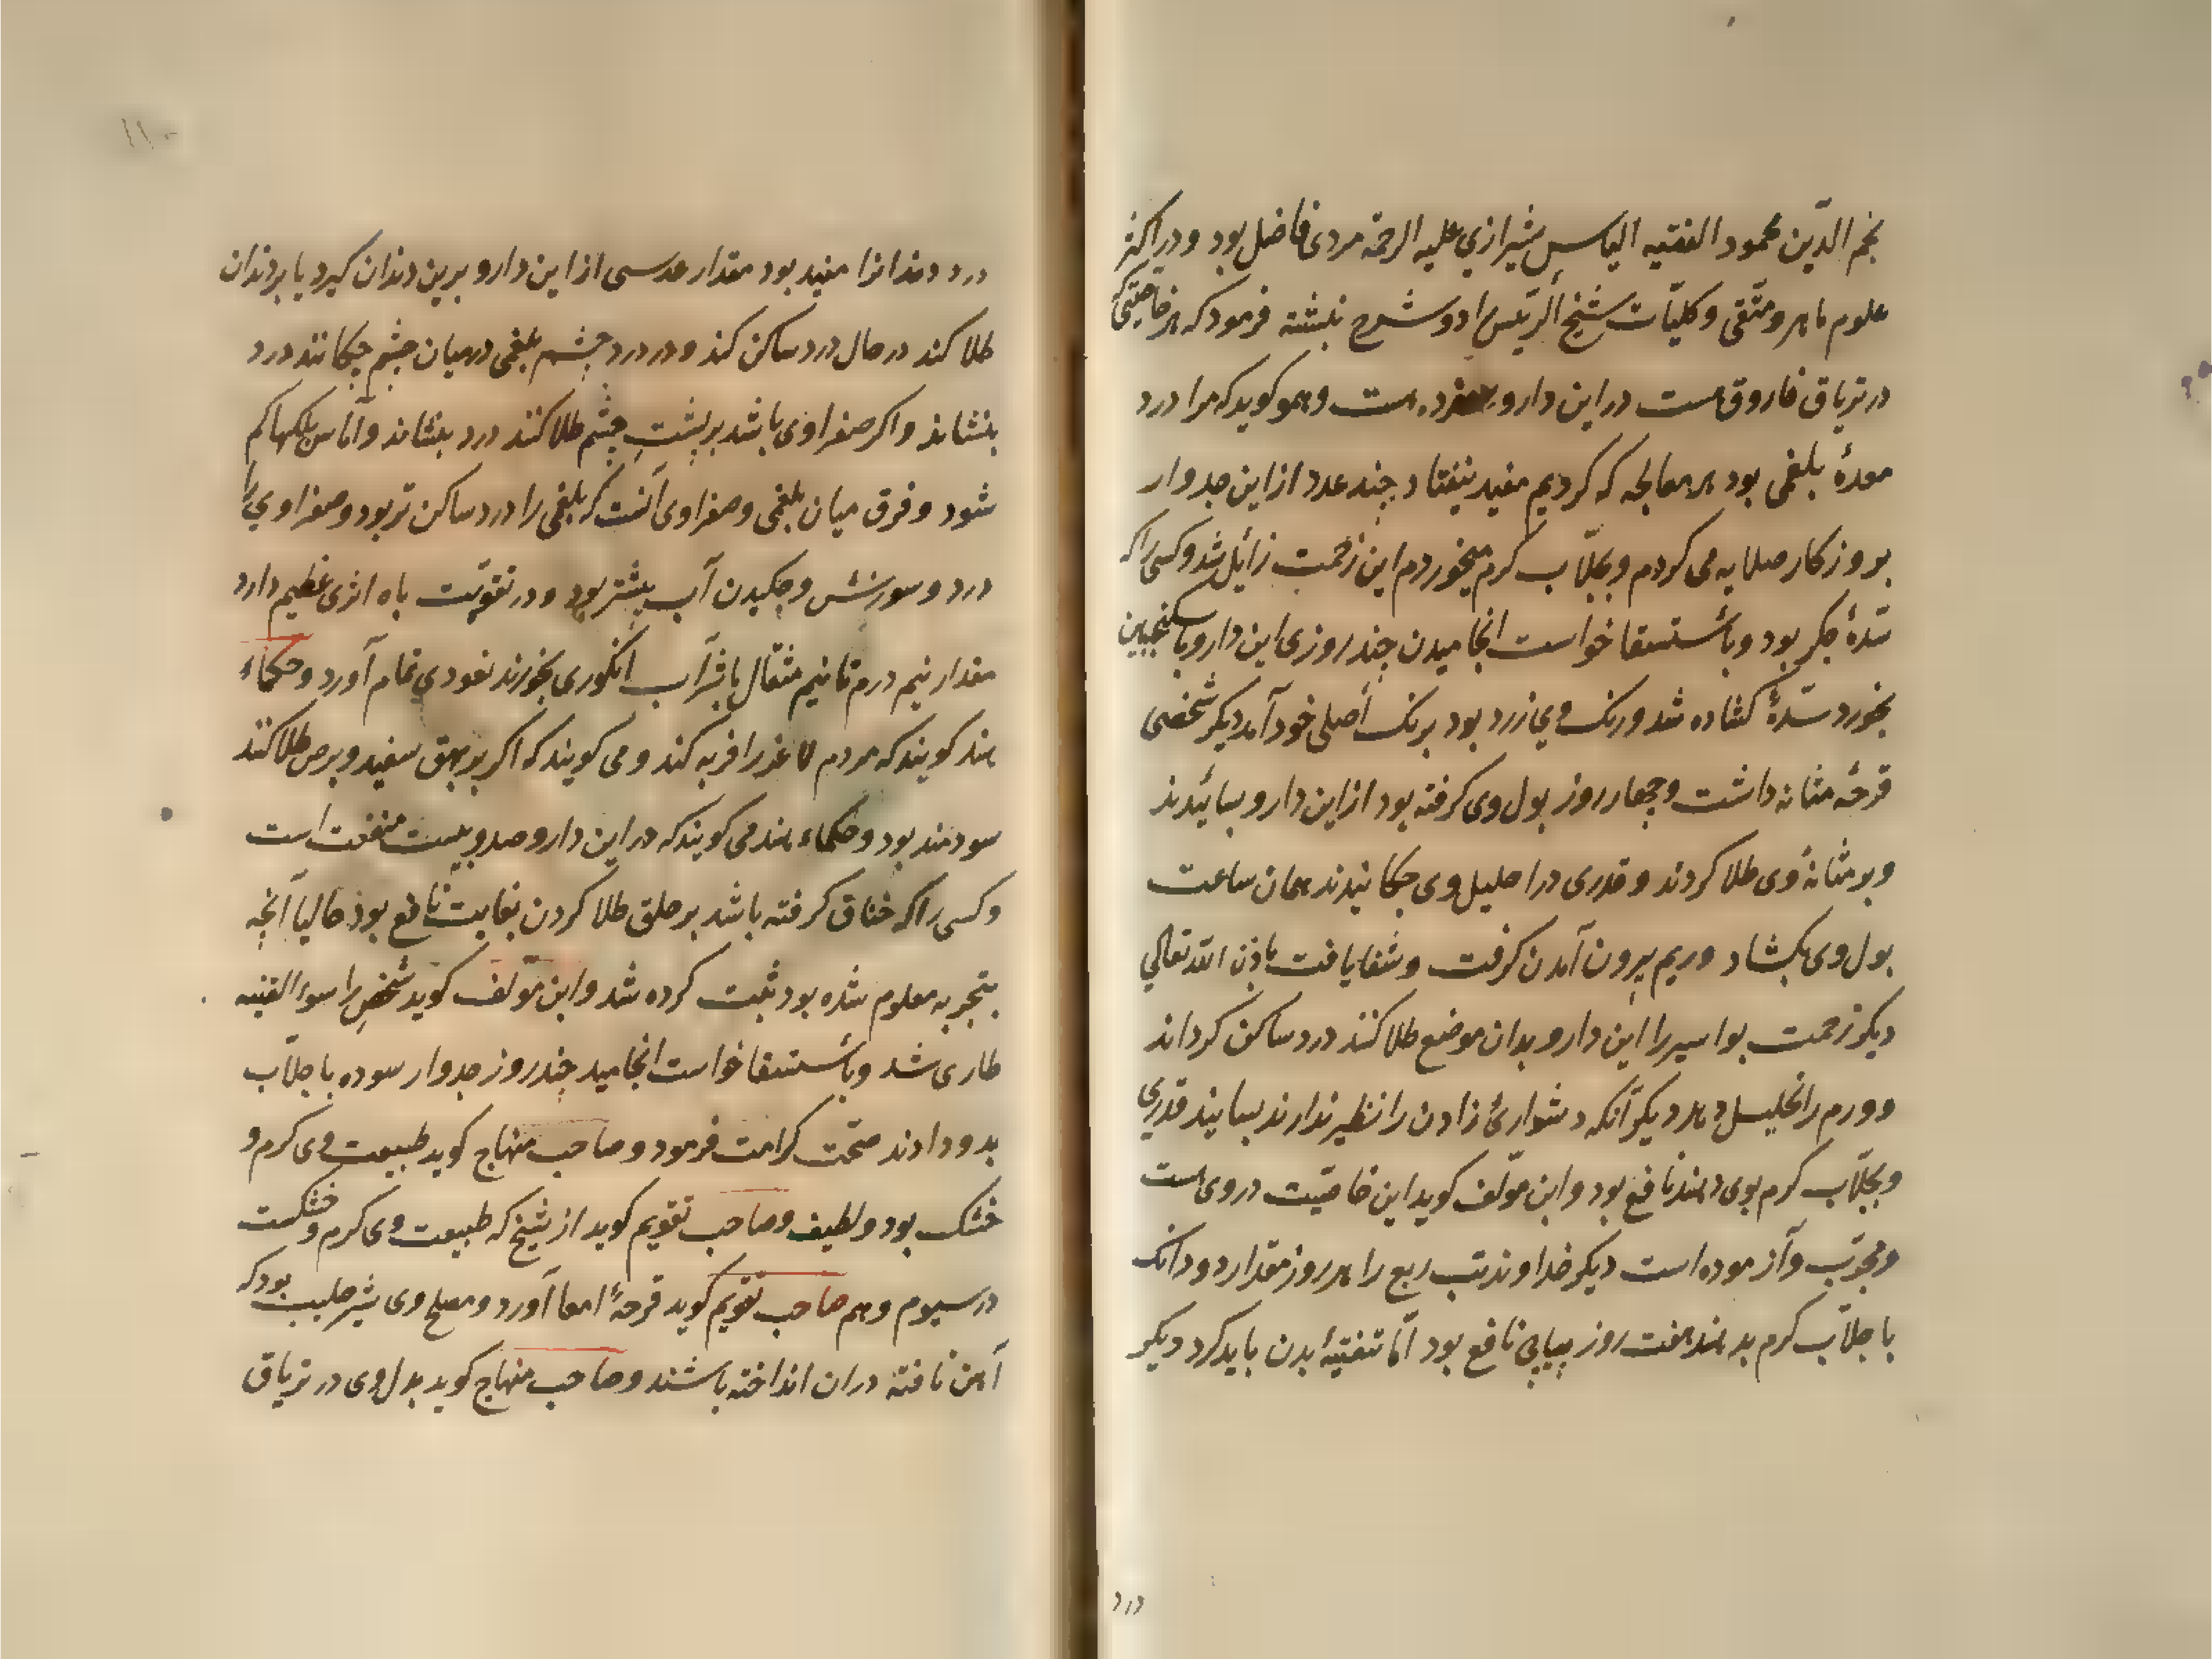 نجم الدّین محمود الفقیه الیاس شیرازی علیه الرحمة مردی فاضل بود و در اکثر
علوم ماهر و متّقی و کلیّات شیخ الرئیس را دو شرح نبشته فرمود که هر خاصیتی که
در تریاق فاروق است در این دارو مفرده است و همو کوید که مرا درد
معدهٔ بلغمی بود هر معالجه که کردیم مفید نیفتاد چند عدد از این جدوار
بروزکار صلایه می کردم و بجلّاب کرم میخوردم این زحمت زائل شد و کسی را که
سدّهٔ جکر بود و باستسقا خواست انجامیدن چند روزی این دارو با سکنجبین
بخورد سدّهٔ کشاده شد و رنک وی زرد بود برنک اصلی خود آمد دیکر شخصی
قرحهٔ مثانه داشت و چهار روز بول وی کرفته بود از این دارو بسائیدند
و بر مثانهٔ وی طلا کردند و قدری در احلیل وی چکانیدند همان ساعت
بول وی بکشاد و ریم بیرون آمدن کرفت و شفا یافت باذن الله تعالی
دیکر زحمت بواسیر را این دارو بدان موضع طلا کنند درد ساکن کرداند
و ورم را تحلیل دهد دیکر آنکه دشواری زادن را نظیر ندارند بسایند قدری
و بجلّاب کرم بوی دهند نافع بود و این مؤلف کوید این خاصیّت در وی است
و مجرّب و آزموده است دیکر خداوند تب ربع را هر روز مقدار دو دانک
با جلّاب کرم بدهند هفت روز پیاپی نافع بود امّا تنقیهٔ بدن باید کرد دیکر
درد
۱۱۰
درد دندانرا مفید بود مقدار عدسی از این دارو برین دندان کیرد یا بر دندان
طلا کند در حال درد ساکن کند و در درد چشم بلغمی در میان چشم چکانند درد
بنشاند و اکر صفراوی باشد بر پشت چشم طلا کنند درد بنشاند و آماس پلکها کم
شود و فرق میان بلغمی و صفراوی آنست که بلغمی را درد ساکن تر بود و صفراوی را
درد و سوزش و چکیدن آب بیشتر بود و در تقویّت باه اثری عظیم دارد
مقدار نیم درم تا نیم مثقال با شراب انکوری بخورند نعودی تمام آورد و حکماء
هند کویند که مردم لاغر را فربه کند و می کویند که اکر بر بهق سفید و برص طلا کنند
سودمند بود و حکماء هند می کویند که در این دارو صد و بیست منفعت است
و کسی را که خناق کرفته باشد بر حلق طلا کردن بغایت نافع بود حالیا آنچه
بتجربه معلوم شده بود ثبت کرده شد و ابن مؤلف کوید شخصی را سوء القنیه
طاری شد و باستسقا خواست انجامید چند روز جدوار سوده با جلّاب
بدو دادند صحّت کرامت فرمود و صاحب منهاج کوید طبیعت وی کرم و
خشک بود و لطیف و صاحب تقویم کوید از شیخ که طبیعت وی کرم و خشکست
در سیوم و هم صاحب تقویم کوید قرحهٔ امعا آورد و مصلح وی شیر حلیب بود که
آهن تافته دران انداخته باشند و صاحب منهاج کوید بدل وی در تریاق